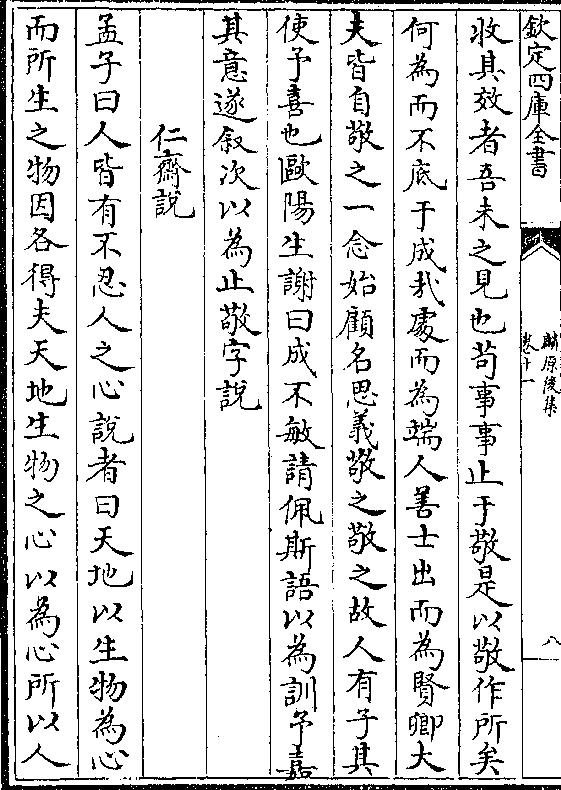 欽定四庫全書
麟原後集
卷十一
八
收其效者吾未之見也苟事事止于敬是以敬作所矣
何為而不底于成我處而為端人善士出而為賢卿大
夫皆自敬之一念始顧名思義敬之敬之故人有子其
使予喜也歐陽生謝曰成不敏請佩斯語以為訓予嘉
其意遂叙次以為止敬字說
仁齋說
孟子曰人皆有不忍人之心說者曰天地以生物為心
而所生之物因各得夫天地生物之心以為心所以人